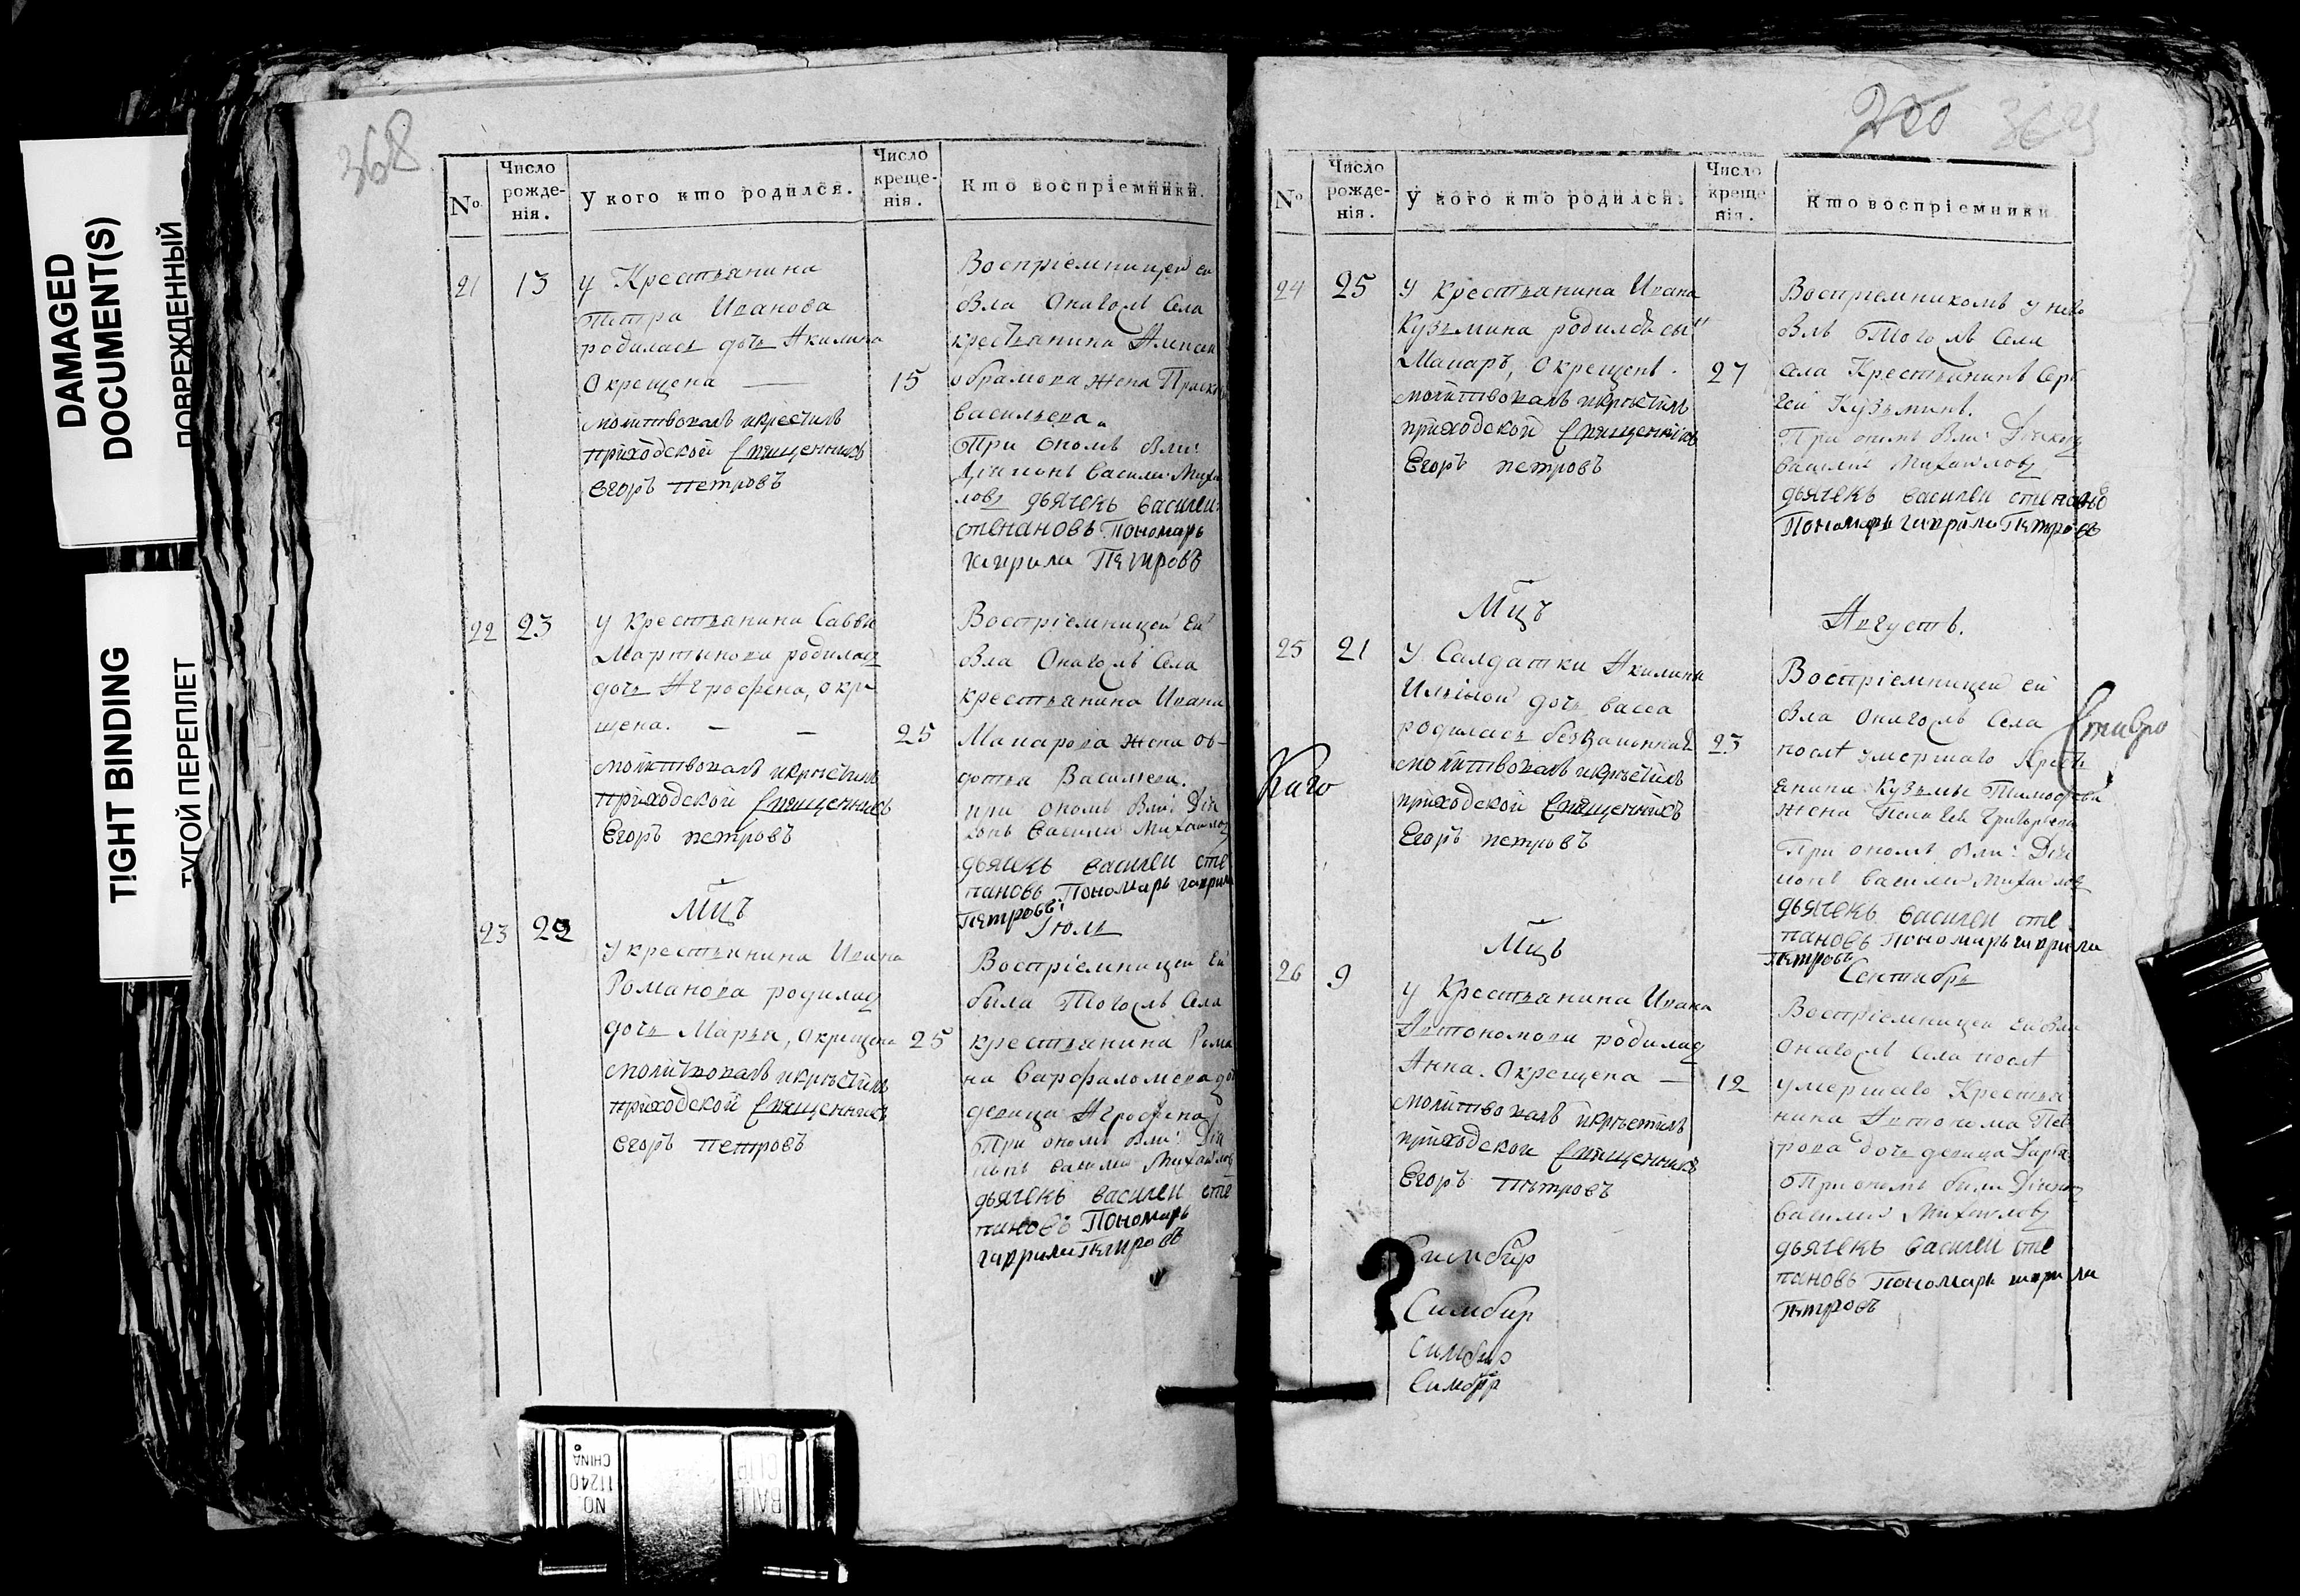 DAMAGED
DOCUMENT(S)
ПОВРЕЖДЕННЫЙ
TIGHT BINDING
ТУГОЙ ПЕРЕПЛЕТ
368
№
Число рожде-нія.
У кого кто родился.
Число креще-нія.
Кто воспріемники.
21
13
у Крестьянина
Петра Иванова
родилась дочь Акилина
окрещена —
15
молитвовалъ икрестилъ
приходской Священникъ
Егоръ петровъ
Воспріемницей ей
бла Онагожъ Села
крестьянина
жена
васильева.
При ономъ бли:
Діаконъ Василей Михай
ловъ дьячекъ василеи
степановъ Пономарь
гаврила Петровъ
22
23
у крестьянина Саввы
Мартынова родилась
дочь Агрофена, окре
щена. — —
25
молитвовалъ икрестилъ
приходской Священникъ
Егоръ петровъ
Воспріемницей ей
бла Онагожъ Села
крестьянина Ивана
Макарова жена Ов-
дотья Васильева.
при ономъ бли: Діа
конъ Василей Михайловъ
дьячекъ василеи сте
пановъ Пономарь гаврила
Петровъ:
Мцъ
Іюль
23
у крестьянина Ивана
Романова родилась
дочь Марья, окрещена
25
молитвовалъ икрестилъ
приходской Священникъ
Егоръ петровъ
Воспріемницей ей
была Тогожъ Села
крестьянина Рома
на Варфаломева до
девица Агрофена
При ономъ бли: Діа
конъ василей Михайловъ
дьячекъ василеи сте
пановъ Пономарь
гаврила Петровъ
200
369
№
Число рожде-нія.
У кого кто родился.
Число креще-нія.
Кто воспріемники.
24
25
у крестьянина Ивана
Кузьмина родился сынъ
Макаръ, окрещенъ.
27
молитвовалъ икрестилъ
приходской Священникъ
Егоръ петровъ
Воспріемникомъ у него
блъ Тогожъ Села
села Крестьянинъ Сер
гей Кузьминъ.
При ономъ бли: Діаконъ
василей Михайловъ
дьячекъ василеи степановъ
Пономарь гаврила Петровъ
Мцъ
Августъ.
25
21
у Салдатки Акилины
Ильиной дочь васса
родилась беззаконная
23
молитвовалъ икрестилъ
приходской Священникъ
Егоръ петровъ
Воспріемницей ей
бла Онагожъ Села
послѣ умершаго Кресть
янина Кузьмы Тимофѣева
жена Григорьева
При ономъ бли: Діа
конъ василей Михайловъ
дьячекъ василеи сте
пановъ Пономарь гаврила
Петровъ
Мцъ
Сентябрь
26
9
у Крестьянина Ивана
Автономова родилась
Анна. Окрещена —
12
молитвовалъ икрестилъ
приходской Священникъ
Егоръ петровъ
Воспріемницей ей бла
онагожъ села послѣ
умершаго Крестья
нина Автонома Пет
рова дочь девица Дарья
При ономъ были Діаконъ
василей Михайловъ
дьячекъ василеи сте
пановъ Пономарь гаврила
Петровъ
?
Симбир
Симбир
Симбир
Симбир
NO.
11240
CHINA